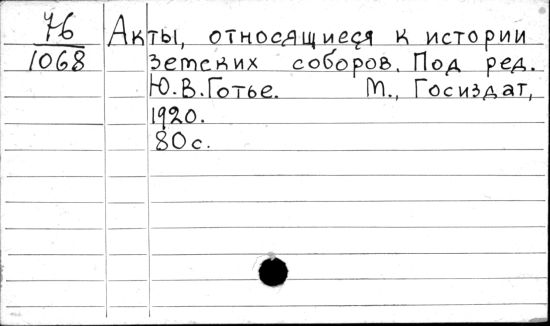 76
1068
Акты, относящиеся к истории
земских соборов. Под ред.
Ю.В.Готье. М., Госиздат,
1920.
80с.